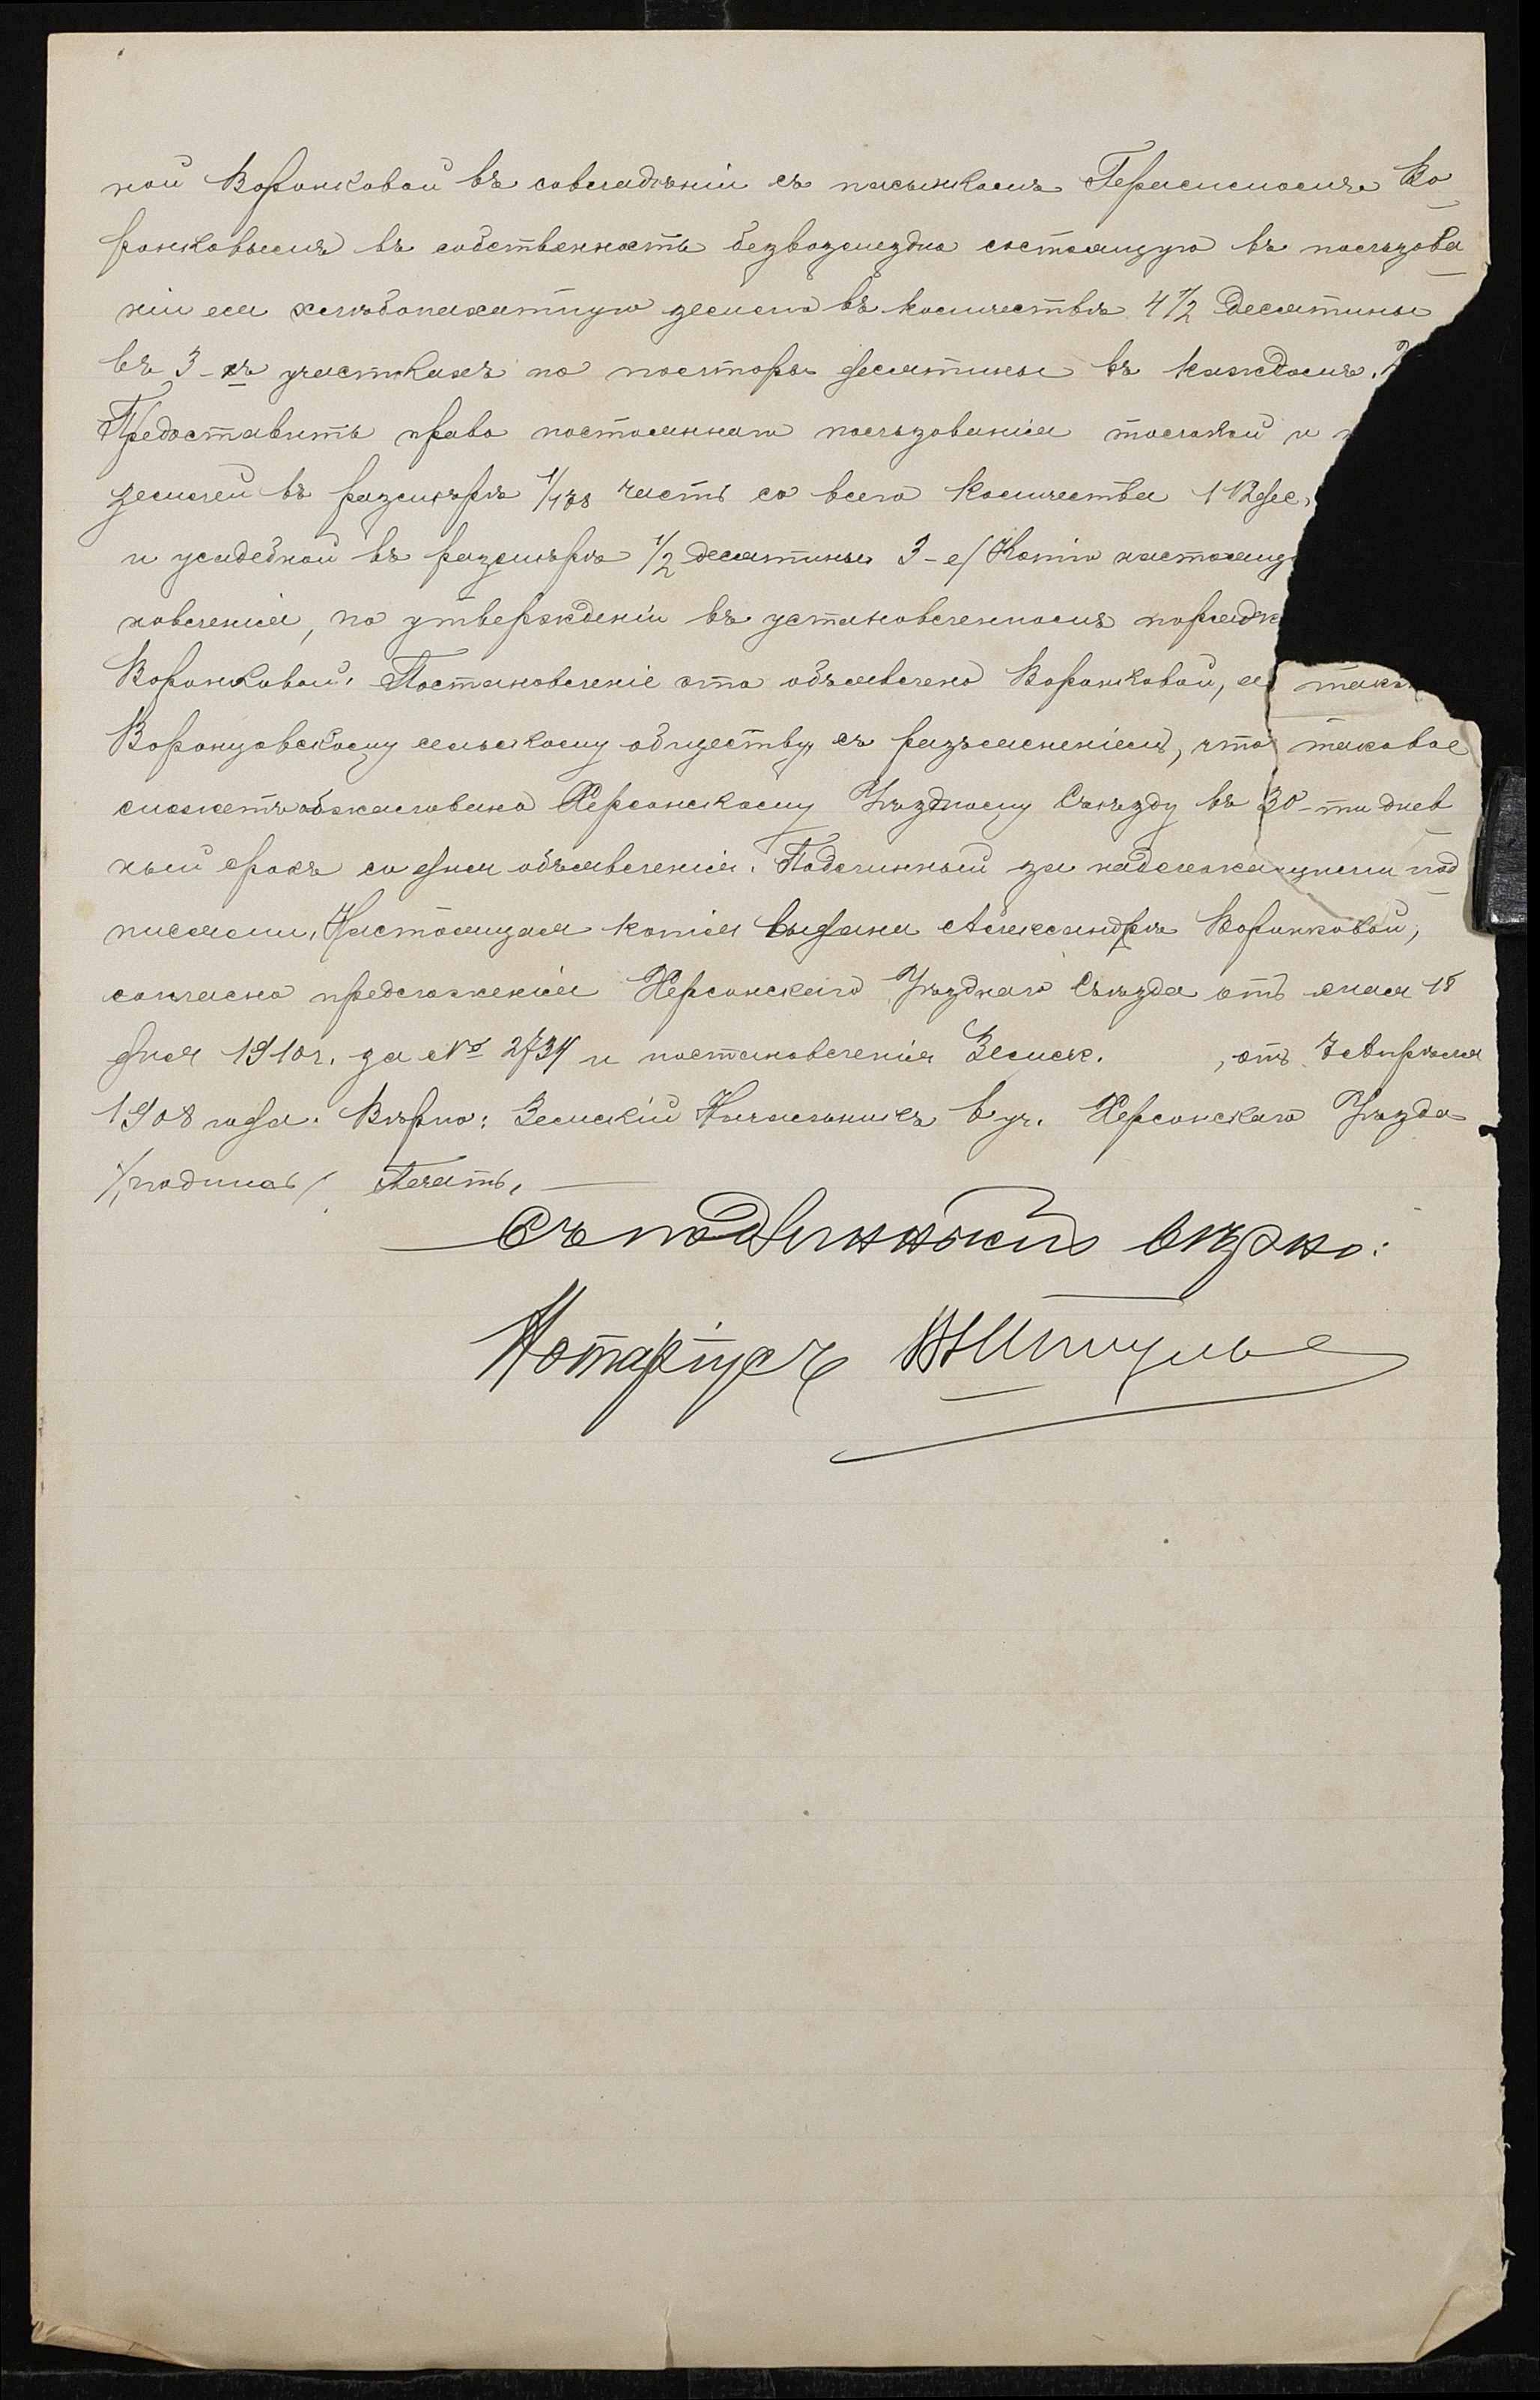 ной Воронковой въ совладѣніи съ пасынкомъ Герасимомъ Во
ронковымъ въ собственность безвозмездно состоящую въ пользова
ніи ея хлѣбопахатную землю въ количествѣ 4 1/2 десятины
въ 3-хъ участкахъ по полторы десятины въ каждомъ.
Предоставить право постояннаго пользованія толокой и
землей въ размѣрѣ часть со всего количества 112 дес.
и усадебной въ размѣрѣ 1/2 десятины 3-е/ Копію настоящ
новленія, по утвержденіи въ установленномъ порядк
Воронковой. Постановленіе это объявлено Воронковой, а такж
Воронцовскому сельскому обществу, съ разъясненіемъ, что таковое
можетъ обжаловано Херсонскому Уѣздному Съѣзду въ 30-ти днев
ный срокъ со дня объявленія. Подлинный за надлежащими под
писями. Настоящая копія выдана Александрѣ Воронковой,
согласно предложенія Херсонскаго Уѣзднаго Съѣзда отъ 18
дня 1910 г. за № 2734 и постановленія Земск. , отъ 7 Апрѣля
1908 года. Вѣрно: Земскій Начальникъ 6 уч. Херсонскаго Уѣзда
/подпись/ Печать.
Съ подлиннымъ вѣрно:
Нотаріусъ